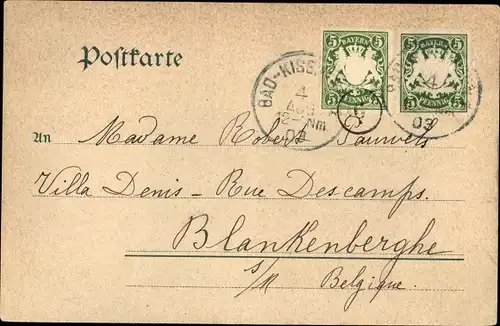 Postkarte
5 BAYERN 5
5 PFENNIG 5
5 BAYERN 5
5 PFENNIG 5
BAD-KISS
4
AUG
Nm
03
4
03
An Madame Robert Sauwels
Villa Denis - Rue Descamps.
Blankenberghe
s/M Belgique.